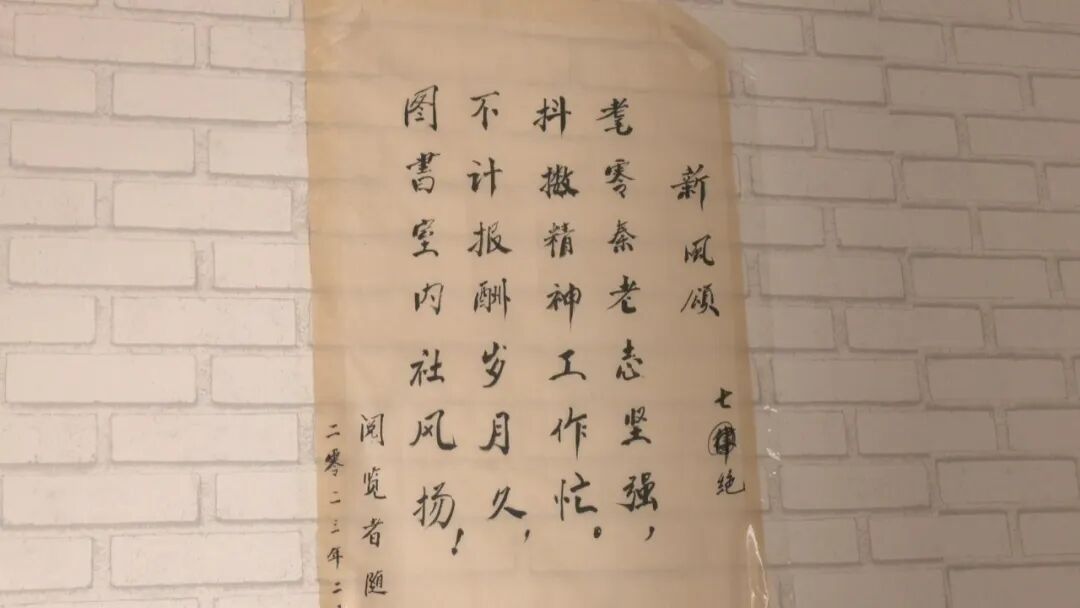 新风颂
七绝
耄零秦老志坚强，
抖擞精神工作忙。
不计报酬岁月久，
图書室内社风扬！
阅览者随
二零二三年二